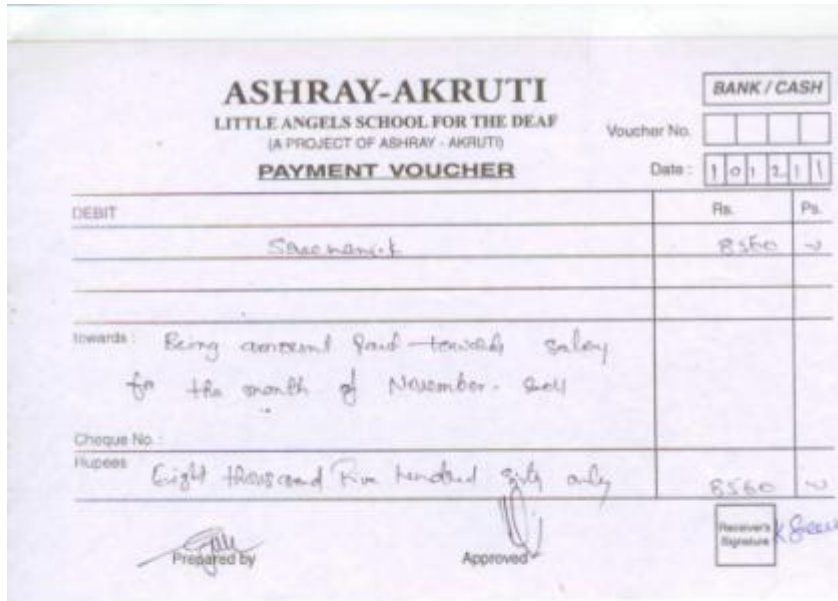 ASHRAY-AKRUTI
BANK / CASH
LITTLE ANGELS SCHOOL FOR THE DEAF
(A PROJECT OF ASHRAY - AKRUTI)
Voucher No.
PAYMENT VOUCHER
Date : 1 0 1 2 1 1
DEBIT Rs. Ps.
8560
towards : Being amount paid towards salary
for the month of November - 2011
Cheque No. :
Rupees Eight thousand Five hundred only
8560
Prepared by
Approved
Receiver's
Signature